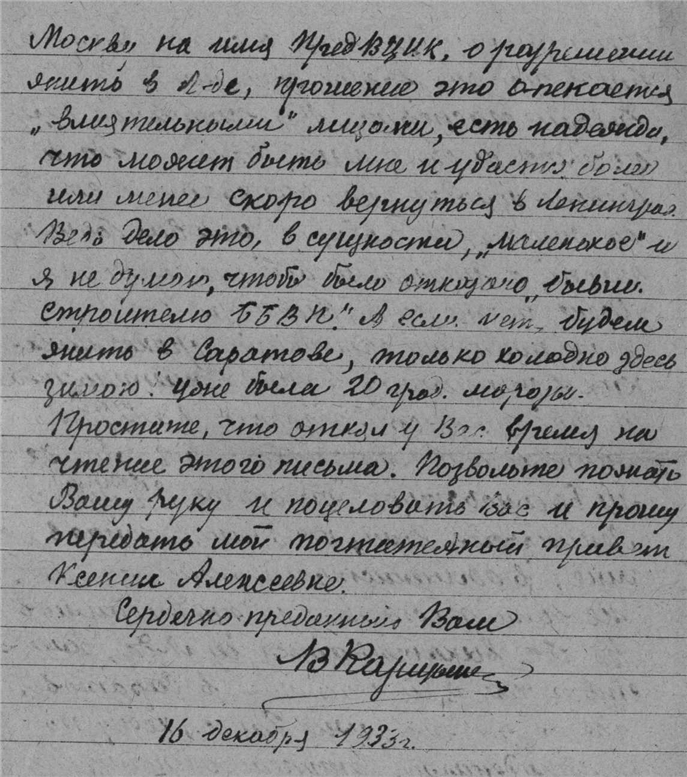 Москву на имя ПредВЦИК, о разрешении
жить в Л-де, прошение это опекается
„влиятельными" лицами, есть надежда,
что может быть мне и удастся более
или менее скоро вернуться в Ленинград.
Ведь дело это, в сущности, „маленькое" и
я не думаю, чтобы было отказано „бывш.
строителю ББВП." А если нет, будем
жить в Саратове, только холодно здесь
зимою: уже была 20 град. мороза.
Простите, что отнял у Вас время на
чтение этого письма. Позвольте пожать
Вашу руку и поцеловать Вас и прошу
передать мой почтительный привет
Ксении Алексеевне.
Сердечно преданный Вам
16 декабря 1933 г.